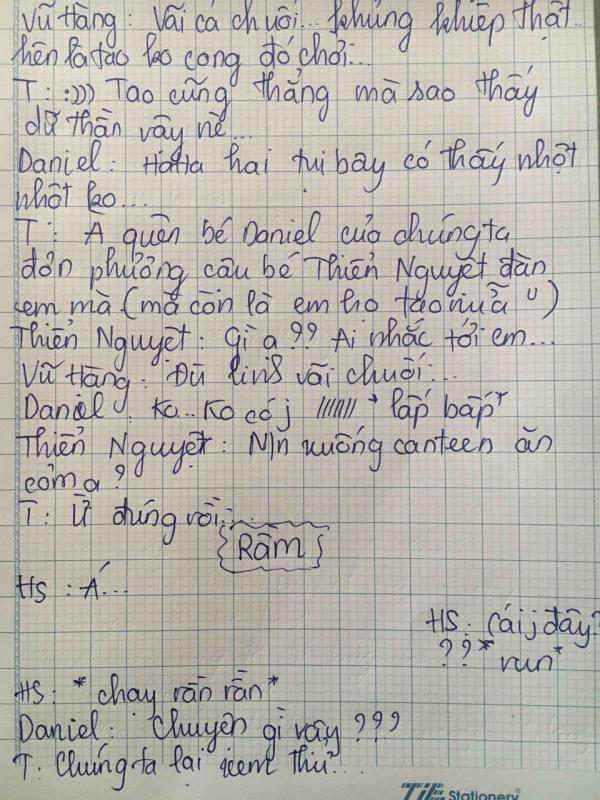 Vũ Hàng: Vãi cả chuối... khủng khiếp thật...
hên là tao ko cong đó chời...
T: :))) Tao cũng thẳng mà sao thấy
dữ thần vậy nè...
Daniel: Haha hai tụi bây có thấy nhột
nhột ko...
T: A quên bé Daniel của chúng ta
đơn phương cậu bé Thiên Nguyệt đàn
em mà (mà còn là em họ tao nữa ")
Thiên Nguyệt: Gì ạ?? Ai nhắc tới em...
Vũ Hàng: Đù linh vãi chuối...
Daniel: Ko.. Ko có j ////// *lắp bắp*
Thiên Nguyệt: Mn xuống canteen ăn
cơm ạ?
T: Ừ đúng rồi...
Rầm
HS: Á...
HS: Cái j đấy?
??*run*
HS: *chạy rần rần*
Daniel: Chuyện gì vậy???
T: Chúng ta lại xem thử...
TIE Stationery